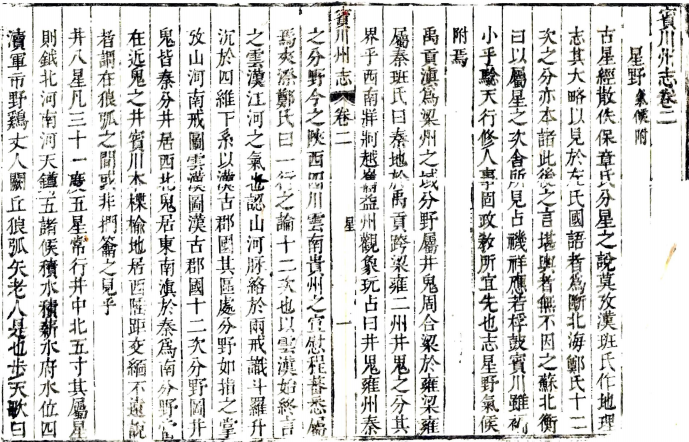 賓川州志卷二
星野 氣候附
古星經散佚保章氏分星之說莫攷漢班氏作地理
志其大略以見於左氏國語者為斷北海鄭氏十二
次之分亦本諸此後之言堪輿者無不因之蘇北衡
曰以屬星之次舍所見占禨祥應若桴鼓賓川雖褊
小乎驗天行修人事固政敎所宜先也志星野氣候
附焉
禹貢滇為梁州之域分野屬井鬼周合梁於雍梁雍
屬秦班氏曰秦地於禹貢跨梁雍二州井鬼之分其
界乎西南牂牁越嶲益州觀象玩占曰井鬼雍州秦
賓川州志 卷二 星 一
之分野今之陝西四川雲南貴州之宣慰程督悉屬
焉夾漈鄭氏曰一行之論十二次也以雲漢始終言
之雲漢江河之氣也認山河脉絡於兩戒識斗羅升
沉於四維下系以漢古郡國其區處分野如指之掌
攷山河南戒圖雲漢圖漢古郡國十二次分野圖井
鬼皆秦分井居西北鬼居東南滇於秦為南分野宜
在近鬼之井賓川本楪榆地居西陲距交緬不遠說
者謂在狼弧之間或非捫籥之見乎
井八星凡三十一度五星常行井中北五寸其屬星
則鉞北河南河天鐏五諸侯積水積薪水府水位四
瀆軍市野鷄丈人闕丘狼弧矢老人是也步天歌曰